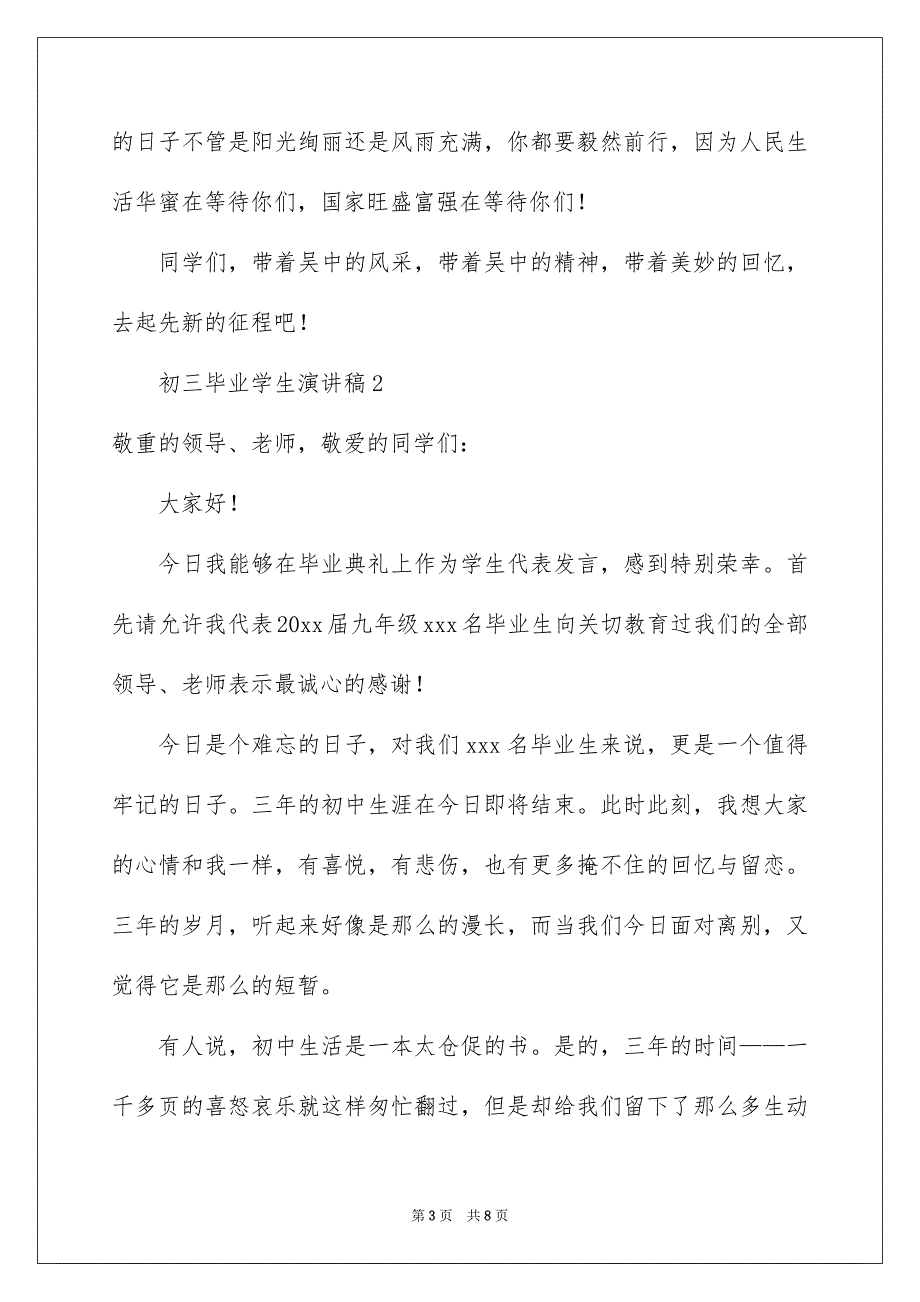 的日子不管是阳光绚丽还是风雨充满，你都要毅然前行，因为人民生
活华蜜在等待你们，国家旺盛富强在等待你们！
同学们，带着吴中的风采，带着吴中的精神，带着美妙的回忆，
去起先新的征程吧！
初三毕业学生演讲稿 2
敬重的领导、老师，敬爱的同学们：
大家好！
今日我能够在毕业典礼上作为学生代表发言，感到特别荣幸。首
先请允许我代表 20xx 届九年级 xxx 名毕业生向关切教育过我们的全部
领导、老师表示最诚心的感谢！
今日是个难忘的日子，对我们 xxx 名毕业生来说，更是一个值得
牢记的日子。三年的初中生涯在今日即将结束。此时此刻，我想大家
的心情和我一样，有喜悦，有悲伤，也有更多掩不住的回忆与留恋。
三年的岁月，听起来好像是那么的漫长，而当我们今日面对离别，又
觉得它是那么的短暂。
有人说，初中生活是一本太仓促的书。是的，三年的时间——一
千多页的喜怒哀乐就这样匆忙翻过，但是却给我们留下了那么多生动
第 3 页 共 8 页